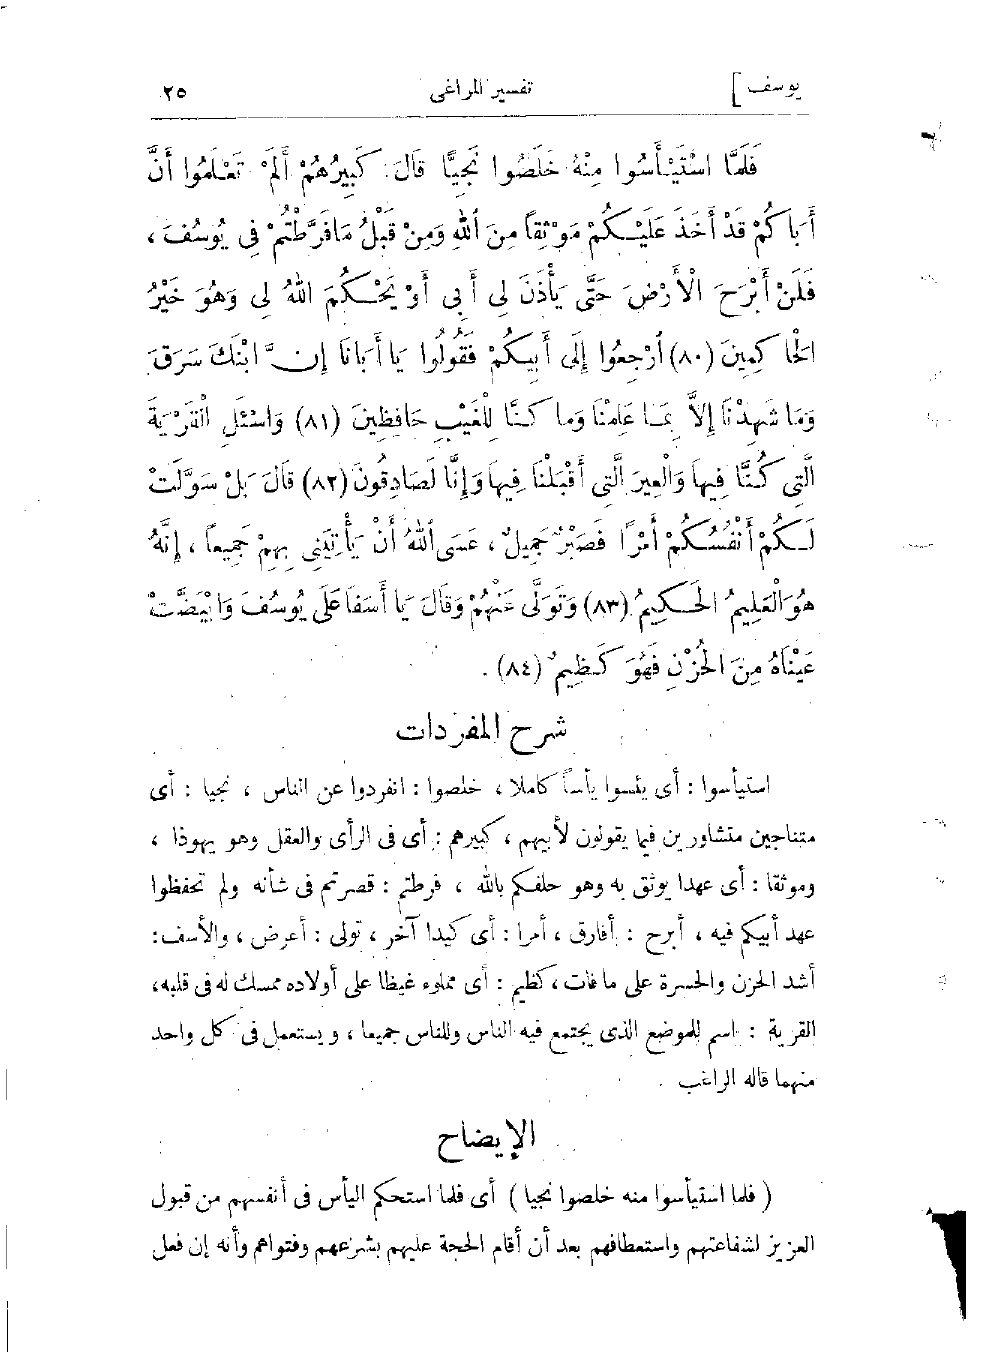 يوسف ]
تفسير المراغى
٢٥
فَلَمَّا اسْتَيْأَسُوا مِنْهُ خَلَصُوا نَجِيًّا قَالَ كَبِيرُهُمْ أَلَمْ تَعْلَمُوا أَنَّ
أَبَاكُمْ قَدْ أَخَذَ عَلَيْكُمْ مَوْثِقاً مِنَ اللهِ وَمِنْ قَبْلُ مَافَرَّطْتُمْ فِى يُوسُفَ ،
فَلَنْ أَبْرَحَ الْأَرْضَ حَتَّى يَأْذَنَ لِى أَبِى أَوْ يَحْكُمَ اللهُ لِى وَهُوَ خَيْرُ
الْحَاكِمِينَ (٨٠) اُرْجِعُوا إِلَى أَبِيكُمْ فَقُولُوا يَا أَبَانَا إِنَّ ابْنَكَ سَرَقَ
وَمَا شَهِدْنَا إِلاَّ بِمَا عَلِمْنَا وَمَا كُنَّا لِلْغَيْبِ حَافِظِينَ (٨١) وَاسْئَلِ الْقَرْيَةَ
الَّتِى كُنَّا فِيهَا وَالْعِيرَ الَّتِى أَقْبَلْنَا فِيهَا وَإِنَّا لَصَادِقُونَ (٨٢) قَالَ بَلْ سَوَّلَتْ
لَكُمْ أَنْفُسُكُمْ أَمْرًا فَصَبْرٌ جَمِيلٌ ، عَسَى اللهُ أَنْ يَأْتِيَنِى بِهِمْ جَمِيعاً ، إِنَّهُ
هُوَ الْعَلِيمُ الْحَكِيمُ (٨٣) وَتَوَلَّى عَنْهُمْ وَقَالَ يَا أَسَفَا عَلَى يُوسُفَ وَابْيَضَّتْ
عَيْنَاهُ مِنَ الْحُزْنِ فَهُوَ كَظِيمٌ (٨٤) .
شرح المفردات
استيأسوا : أى يئسوا يأساً كاملا ، خلصوا : انفردوا عن الناس ، نجيا : أى
متناجين متشاورين فيما يقولون لأبيهم ، كبيرهم : أى فى الرأى والعقل وهو يهوذا ،
وموثقا : أى عهدا يوثق به وهو حلفكم بالله ، فرطتم : قصرتم فى شأنه ولم تحفظوا
عهد أبيكم فيه ، أبرح : أفارق ، أمرا : أى كيدا آخر ، تولى : أعرض ، والأسف :
أشد الحزن والحسرة على ما فات ، كظيم : أى مملوء غيظا على أولاده ممسك له فى قلبه ،
القرية : اسم للموضع الذى يجتمع فيه الناس وللناس جميعا ، ويستعمل فى كل واحد
منهما قاله الراغب .
الإيضاح
( فلما استيأسوا منه خلصوا نجيا ) أى فلما استحكم اليأس فى أنفسهم من قبول
العزيز لشفاعتهم واستعطافهم بعد أن أقام الحجة عليهم بشرعهم وفتواهم وأنه إن فعل